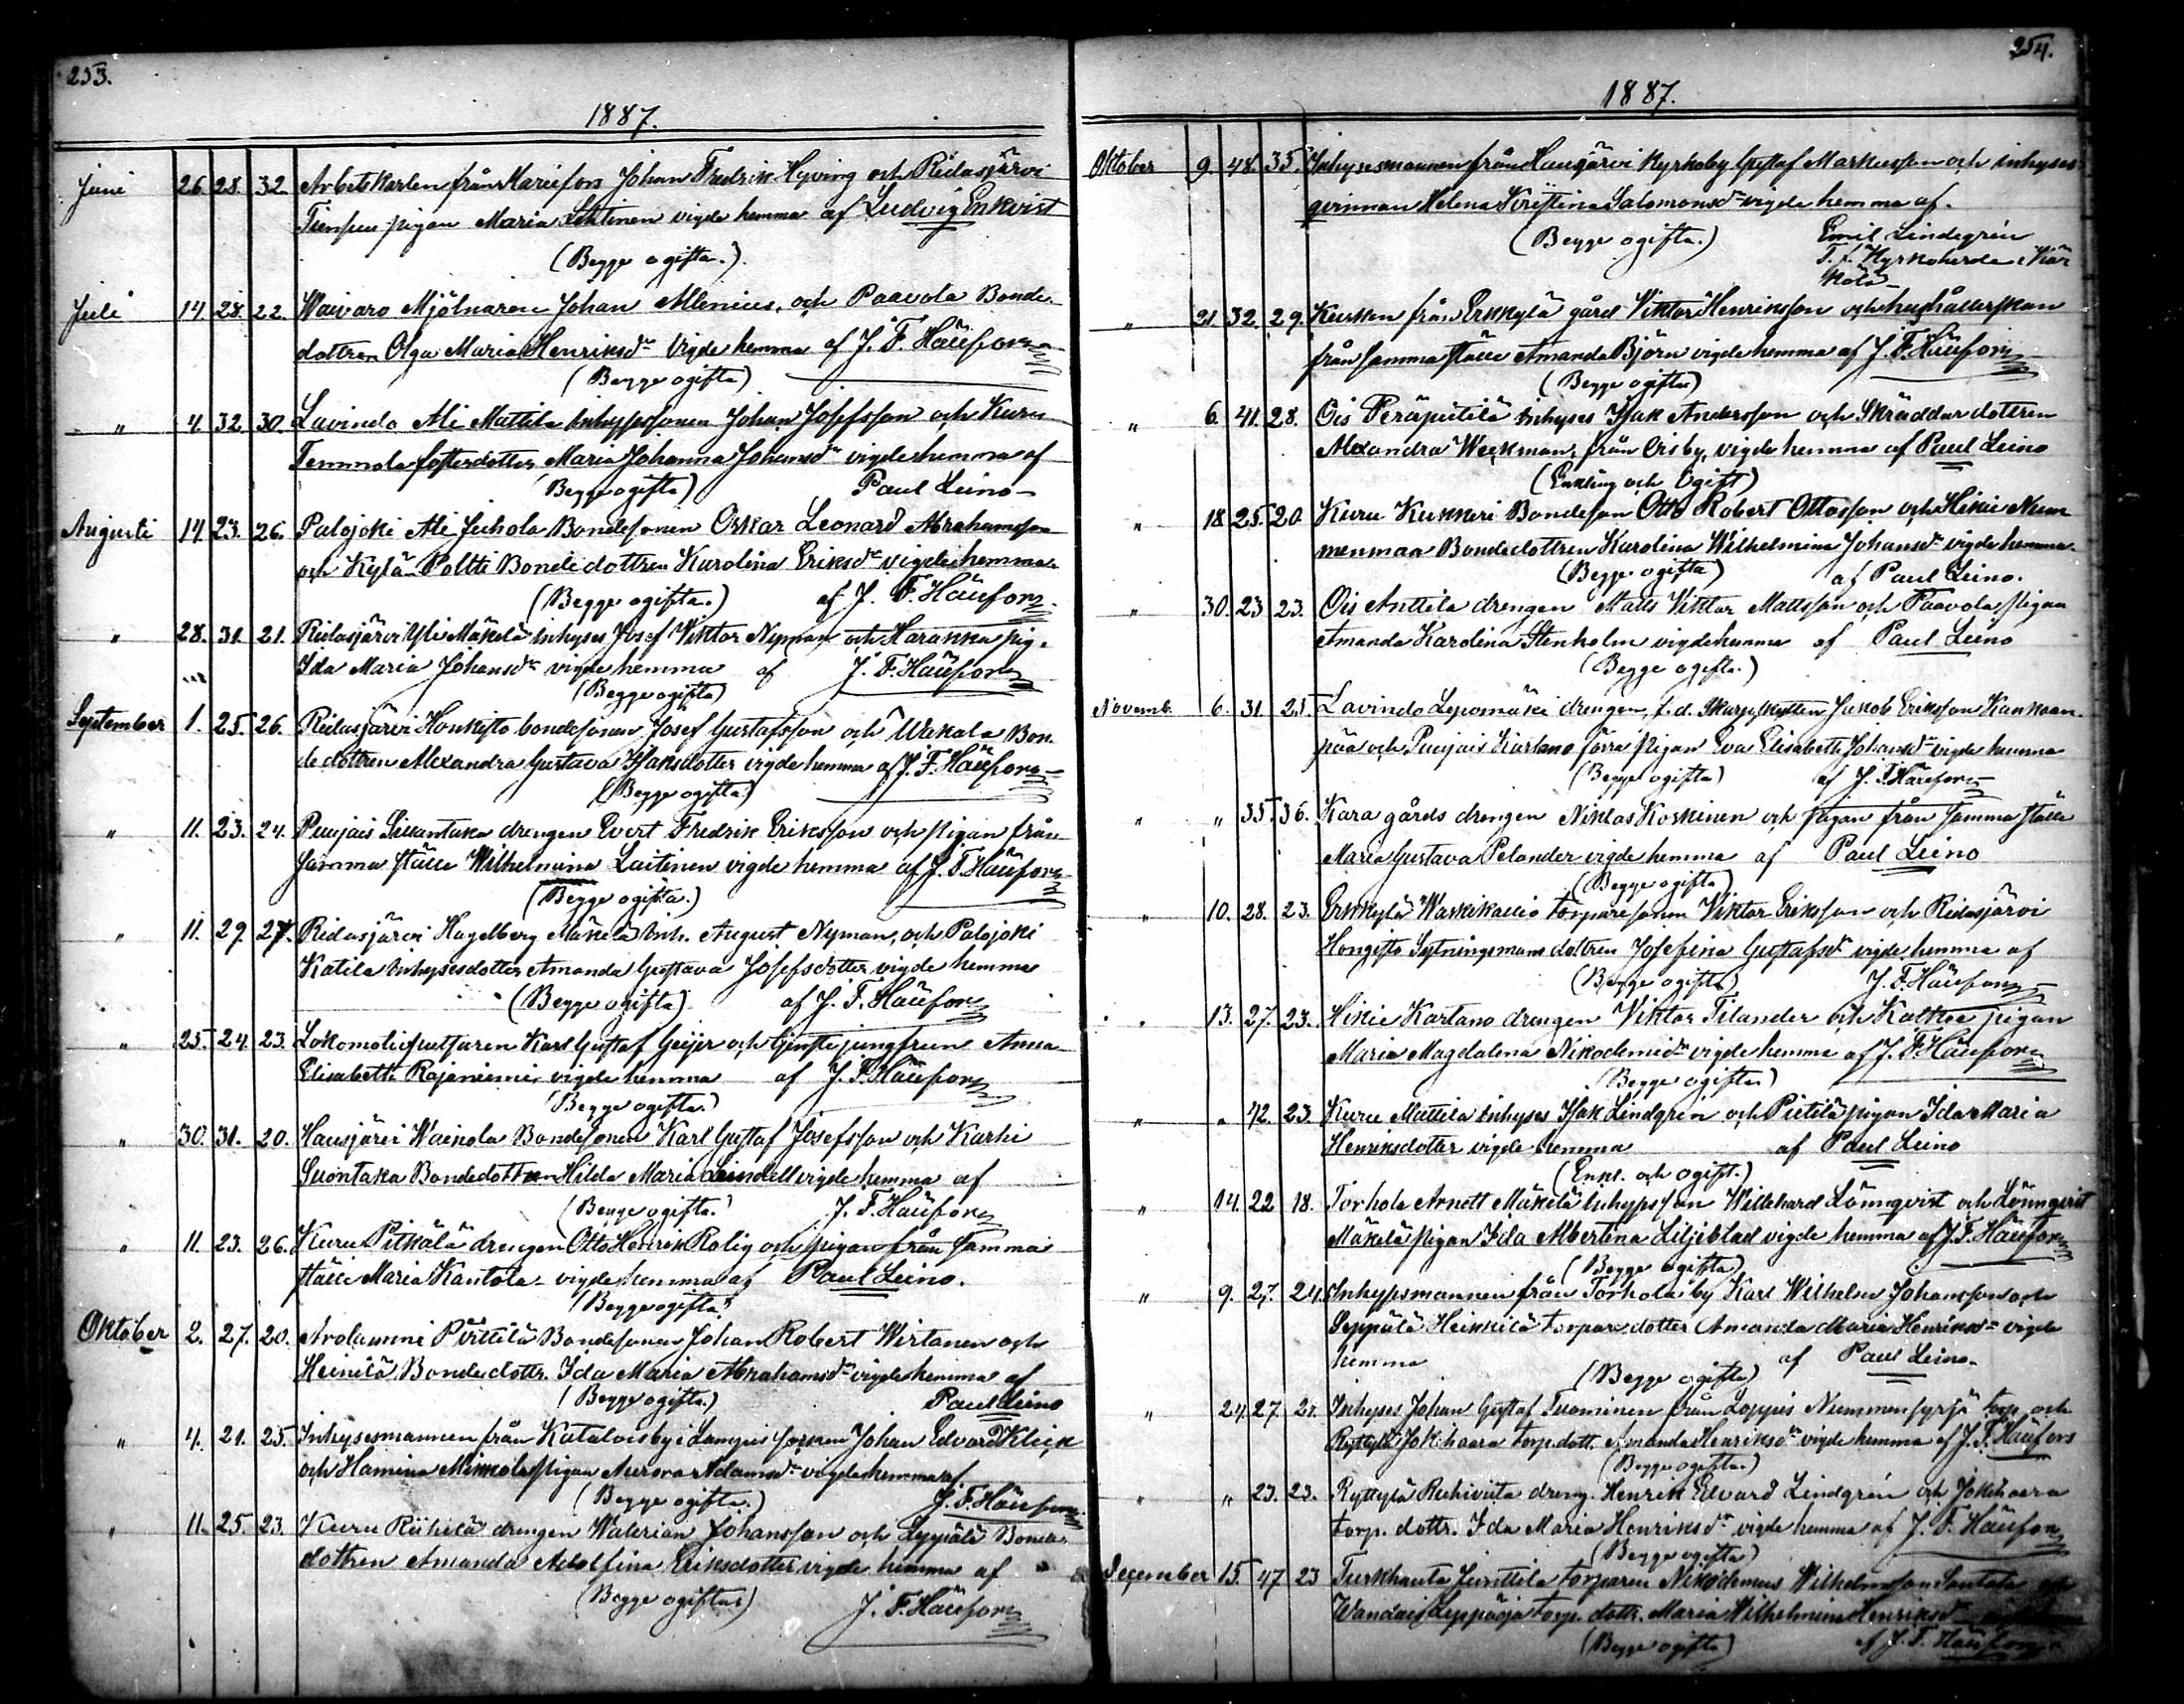 253.
1887.
Juni 26. 28. 32. Arbetskarlen från Mariefors Johan Fredrik Hyving och Ridasjärvi
Tiensuu pigan Maria Lehtinen vigde hemma af Ludvig Enkvist
(Begge ogifta.)
Juli 14 28. 22. Waivaro Mjölnaren Johan Alenius, och Paavola Bonde-
dottren Olga Maria Henriksdr Vigde hemma af J. F. Häüfors
(Begge ogifta)
" 4. 32. 30. Lavindo Ali Mattila Inhysessonen Johan Josefsson och Kuru
Temmola fosterdotter Maria Johanna Johansdr vigde hemma af
(Begge ogifta) Paul Leino
Augusti 14 23. 26. Palojoki Ali Juhola Bondesonen Oskar Leonard Abrahamsson
och Kylä-Poltti Bondedottren Karolina Eriksdr vigde hemma
(Begge ogifta.) af J. F. Häüfors
" 28. 31. 21. Ridasjärvi Yli Mäkelä Inhyses Josef Viktor Nyman och Harakka pig.
Ida Maria Johansdr vigde hemma af J. F. Häüfors
(Begge ogifta)
September 1. 25. 26. Ridasjärvi Honkisto bondesonen Josef Gustafsson och Urkala Bon-
de dottren Alexandra Gustava Isaksdotter vigde hemma af J. F. Häüfors
(Begge ogifta)
" 11. 23. 24. Punjais Siuntaka drengen Evert Fredrik Eriksson och pigan från
samma ställe Wilhelmina Laitinen vigde hemma af J. F. Häüfors
(Begge ogifta.)
" 11. 29. 27. Ridasjärvi Hagelberg Mäkelä Inh. August Nyman, och Palojoki
Katila Inhysesdotter Amanda Gustava Josefsdotter vigde hemma
(Begge ogifta) af J. F. Häüfors
" 25. 24. 23. Lokomotivputsaren Karl Gustaf Geijer och tjenstejungfrun Anna
Elisabeth Rajaniemi vigde hemma af J. F. Häüfors
(Begge ogifta.)
" 30. 31. 20. Hausjärvi Wainola Bondesonen Karl Gustaf Josefsson och Karhi
Suontaka Bondedottren Hilda Maria Leindell vigde hemma af
(Begge ogifta.) J. F. Häüfors
" 11. 23. 26. Kuru Pitkälä drengen Otto Henrik Rolig och pigan från samma
ställe Maria Kantola vigde hemma af Paul Leino.
(Begge ogifta)
Oktober 2. 27. 20. Arolammi Pirttilä Bondesonen Johan Robert Wirtanen och
Heinilä Bondedottr. Ida Maria Abrahamsdr vigde hemma af
(Begge ogifta.) Paul Leino
" 4. 21. 25. Inhysesmannen från Kataloisby i Lampis socken Johan Edvard Klick
och Hamina Mikkola pigan Aurora Adamsdr vigde hemma af
(Begge ogifta.) J. F. Häüfors
" 11. 25. 23. Kuru Riihelä drengen Walerian Johansson och Seppälä Bonde-
dottren Amanda Adolfina Eriksdotter vigde hemma af
(Begge ogifta) J. F. Häüfors
254.
1887.
Oktober 9. 48. 35. Inhysesmannen från Hausjärvi Kyrkoby Gustaf Markusson och inhyses
qvinnan Helena Kristina Salomonsdr vigde hemma af.
(Begge ogifta.) Emil Lindegrén
T. f. Kyrkoherde i Kär
kölä
" 21 32. 29. Kusken från Erkkylä gård Viktor Henriksson och hushållerskan
från samma ställe Amanda Björn vigde hemma af J. F. Häüfors
(Begge ogifta)
" 6. 41. 28. Ois Peräpietilä Inhyses Isak Andersson och Skräddar dottren
Alexandra Weckman, från Oisby, vigde hemma af Paul Leino
(Enkling och Ogift)
" 18 25. 20 Kuru Kukkeri Bondeson Otto Robert Ottosson och Hikie Num
menmaa Bondedottren Karolina Wilhelmina Johansdr vigde hemma
(Begge ogifta) af Paul Leino.
" 30. 23 23. Ois Anttila drengen Matts Viktor Mattsson och Paavola pigan
Amanda Karolina Stenholm vigde hemma af Paul Leino
(Begge ogifta.)
Novemb. 6. 31. 25. Lavindo Lepomäki drengen, f.d. Skarpskytten Jakob Eriksson Kankaan-
pää och Punjais Kartano förra pigan Eva Elisabeth Johansdr vigde hemma
(Begge ogifta) af J. F. Häüfors
" " 35. 36. Kara gårds drengen Niklas Koskinen och pigan från samma ställe
Maria Gustava Pelander vigde hemma af Paul Leino
(Begge ogifta)
" 10. 28. 23. Erkkylä Waskikallio torparesonen Viktor Eriksson och Ridasjärvi
Hongisto Sytningsmans dottren Josefina Gustafsdr vigde hemma af
(Begge ogifta) J. F. Häüfors
" 13. 27. 23. Hikie Kartano drengen Viktor Tilander och Kathoe pigan
Maria Magdalena Nikodemidr vigde hemma af J. F. Häüfors
(Begge ogifta)
" " 42. 23. Kuru Mattila Inhyses Isak Lindgrén och Pietilä pigan Ida Maria
Henriksdotter vigde hemma af Paul Leino
(Enkl. och ogift.)
" 14. 22 18. Torhola Arnott Mäkelä Inhysesson Willehard Lönnqvist och Lönnqvist
Mäkelä pigan Ida Albertina Liljeblad vigde hemma af J. F. Häüfors
(Begge ogifta)
" 9. 27. 24. Inhysesmannen från Torhola by Karl Wilhelm Johansson och
Seppälä Heikkilä torpare dotter Amanda Maria Henriksdr vigde
hemma (Begge ogifta) af Paul Leino.
" 24. 27 21. Inhyses Johan Gustaf Tuominen från Loppis Nummensyrjä torp och
Ryttylä Jokihaara torpdott. Amanda Henriksdr vigde hemma af J. F. Häüfors
(Begge ogifta.)
" " 23. 23. Ryttylä Ruhiviita dreng. Henrik Edvard Lindgrén och Jokihaara
torp. dottr. Ida Maria Henriksdr vigde hemma af J. F. Häüfors
(Begge ogifta)
December 15. 47 23 Turkhauta Junttila torparen Nikodemus Wilhelmsson Santala
Wandais Leppäoja torp. dottr. Maria Wilhelmina Henriksdr
(Begge ogifta) af J. F. Häüfors